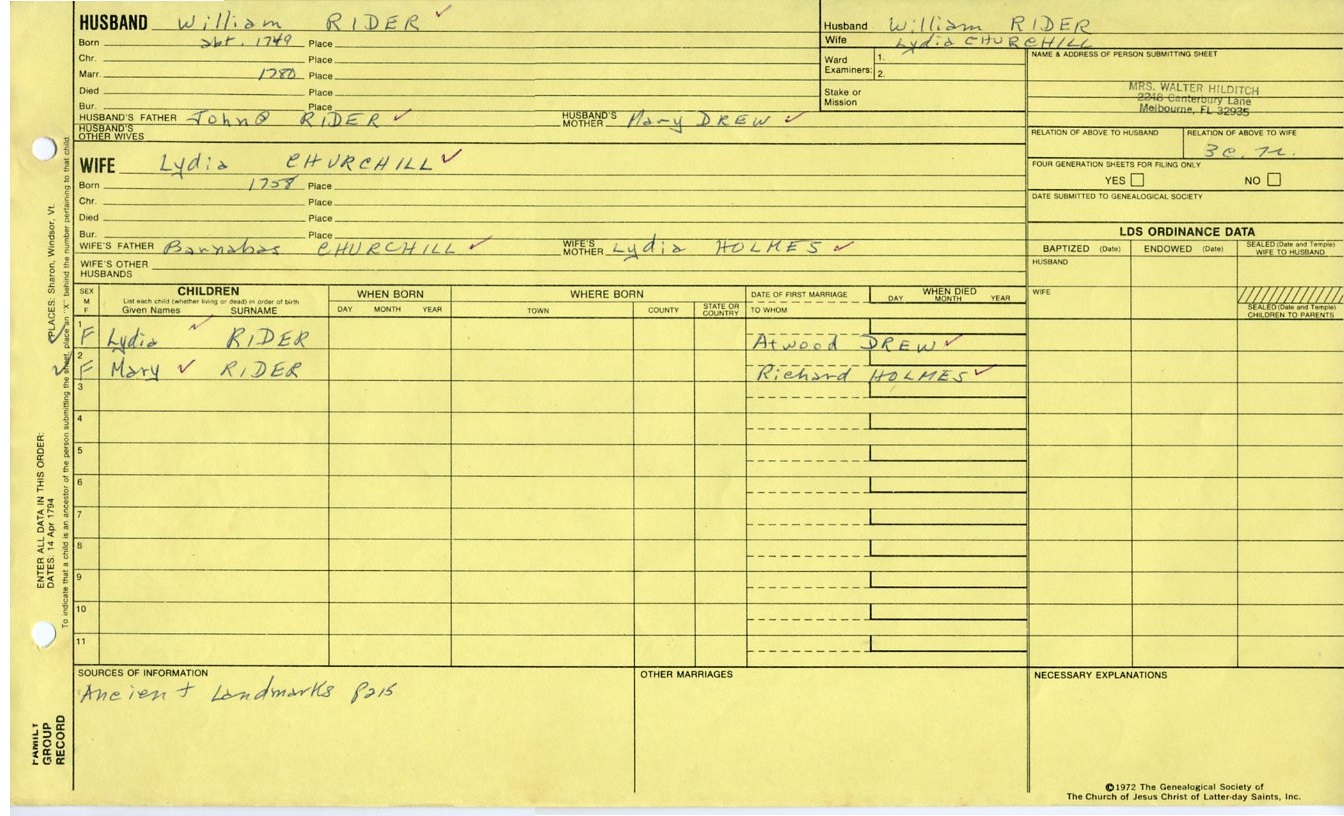 HUSBAND William RIDER ✓
Born abt. 1749 Place
Chr. Place
Marr. 1780 Place
Died Place
Bur. Place
HUSBAND'S FATHER John RIDER ✓ HUSBAND'S MOTHER Mary DREW ✓
HUSBAND'S OTHER WIVES
Husband William RIDER
Wife Lydia CHURCHILL
Ward Examiners: 1.
2.
Stake or Mission
NAME & ADDRESS OF PERSON SUBMITTING SHEET
MRS. WALTER HILDITCH
2248 Canterbury Lane
Melbourne, FL 32935
RELATION OF ABOVE TO HUSBAND RELATION OF ABOVE TO WIFE
FOUR GENERATION SHEETS FOR FILING ONLY
YES ☐ NO ☐
DATE SUBMITTED TO GENEALOGICAL SOCIETY
WIFE Lydia CHURCHILL ✓
Born 1758 Place
Chr. Place
Died Place
Bur. Place
WIFE'S FATHER Barnabas CHURCHILL ✓ WIFE'S MOTHER Lydia HOLMES ✓
WIFE'S OTHER HUSBANDS
LDS ORDINANCE DATA
BAPTIZED (Date) ENDOWED (Date) SEALED (Date and Temple) WIFE TO HUSBAND
HUSBAND
WIFE
SEALED (Date and Temple) CHILDREN TO PARENTS
SEX M F
CHILDREN
List each child (whether living or dead) in order of birth
Given Names SURNAME
WHEN BORN
DAY MONTH YEAR
WHERE BORN
TOWN COUNTY STATE OR COUNTRY
DATE OF FIRST MARRIAGE
TO WHOM
WHEN DIED
DAY MONTH YEAR
1 F Lydia ✓ RIDER Atwood DREW ✓
2 ✓ F Mary ✓ RIDER Richard HOLMES ✓
3
4
5
6
7
8
9
10
11
SOURCES OF INFORMATION
Ancient Landmarks P215
OTHER MARRIAGES
NECESSARY EXPLANATIONS
©1972 The Genealogical Society of
The Church of Jesus Christ of Latter-day Saints, Inc.
ENTER ALL DATA IN THIS ORDER:
DATES: 14 Apr 1794 PLACES: Sharon, Windsor, Vt.
To indicate that a child is an ancestor of the person submitting the sheet, place an "X" behind the number pertaining to that child
FAMILY
GROUP
RECORD